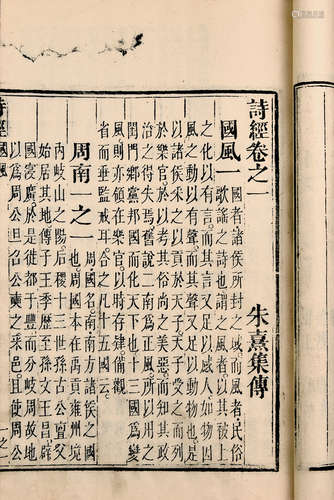 詩經卷之一 朱熹集傳
國風一 國者諸侯所封之域而風者民俗
歌謠之詩也謂之風者以其被上
之化以有言而其言又足以感人如物因
風之動以有聲而其聲又足以動物也是
以諸侯采之以貢於天子天子受之而列
於樂官於以考其俗尚之美惡而知其政
治之得失焉舊說二南爲正風所以用之
閨門鄉黨邦國而化天下也十三國爲變
風則亦領在樂官以時存肄備觀
省而垂監戒耳合之凡十五國云
周南一之一 周國名南南方諸侯之國
也周國本在禹貢雍州境
內岐山之陽后稷十三世孫古公亶父
始居其地傳子王季歷至孫文王昌辟
國寖廣於是徙都于豐而分岐周故地
以爲周公旦召公奭之采邑且使周公
詩經 國風